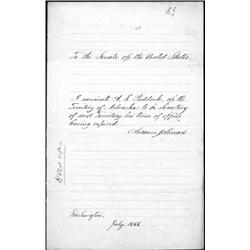 To the Senate of the United States.
I nominate A. S. Paddock, of the
Territory of Nebraska to be Secretary
of said Territory, his term of office
having expired.
Andrew Johnson
Washington,
July, 1866